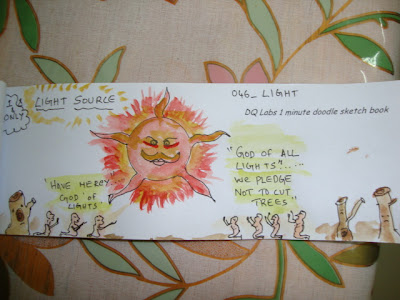 LIGHT SOURCE
046_ LIGHT
DQ Labs 1 minute doodle sketch book
ONLY
"HAVE MERCY
GOD OF
LIGHTS"
"GOD OF ALL
LIGHTS"......
WE PLEDGE
NOT TO CUT
TREES"